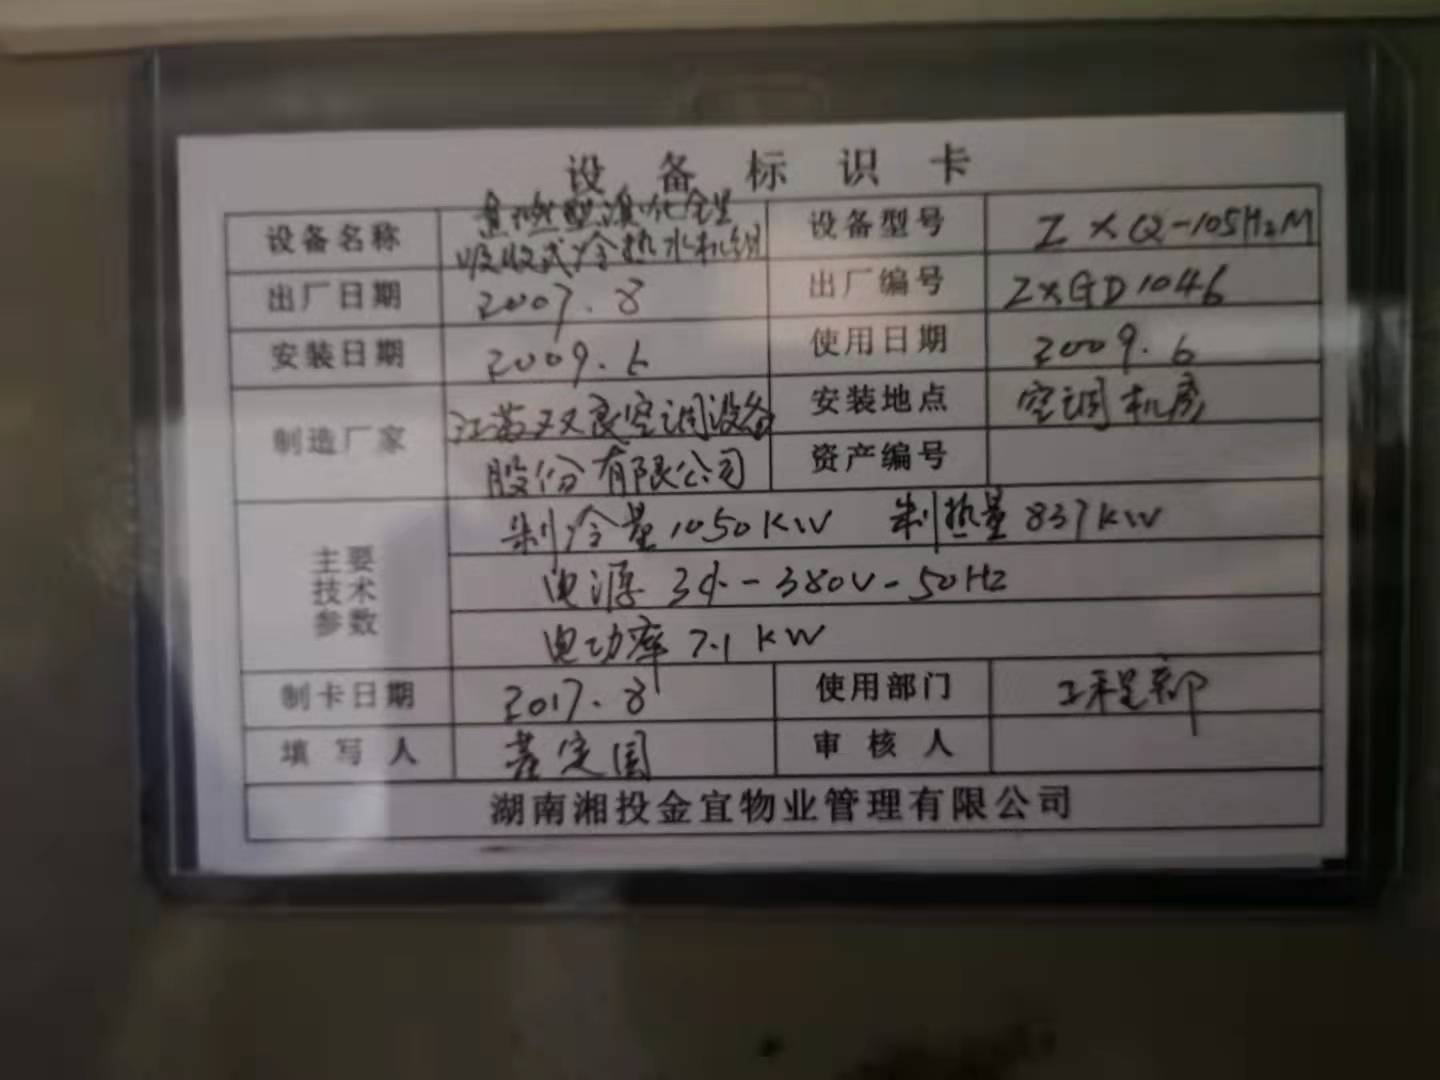 设备标识卡
设备名称 直燃型溴化锂吸收式冷热水机组 设备型号 ZXQ-105H2M
出厂日期 2007.8 出厂编号 ZXGD1046
安装日期 2009.6 使用日期 2009.6
制造厂家 江苏双良空调设备股份有限公司 安装地点 空调机房
资产编号
主要技术参数 制冷量1050KW 制热量837KW
电源 3φ-380V-50Hz
电功率 7.1KW
制卡日期 2017.8 使用部门 工程部
填写人 定国 审核人
湖南湘投金宜物业管理有限公司